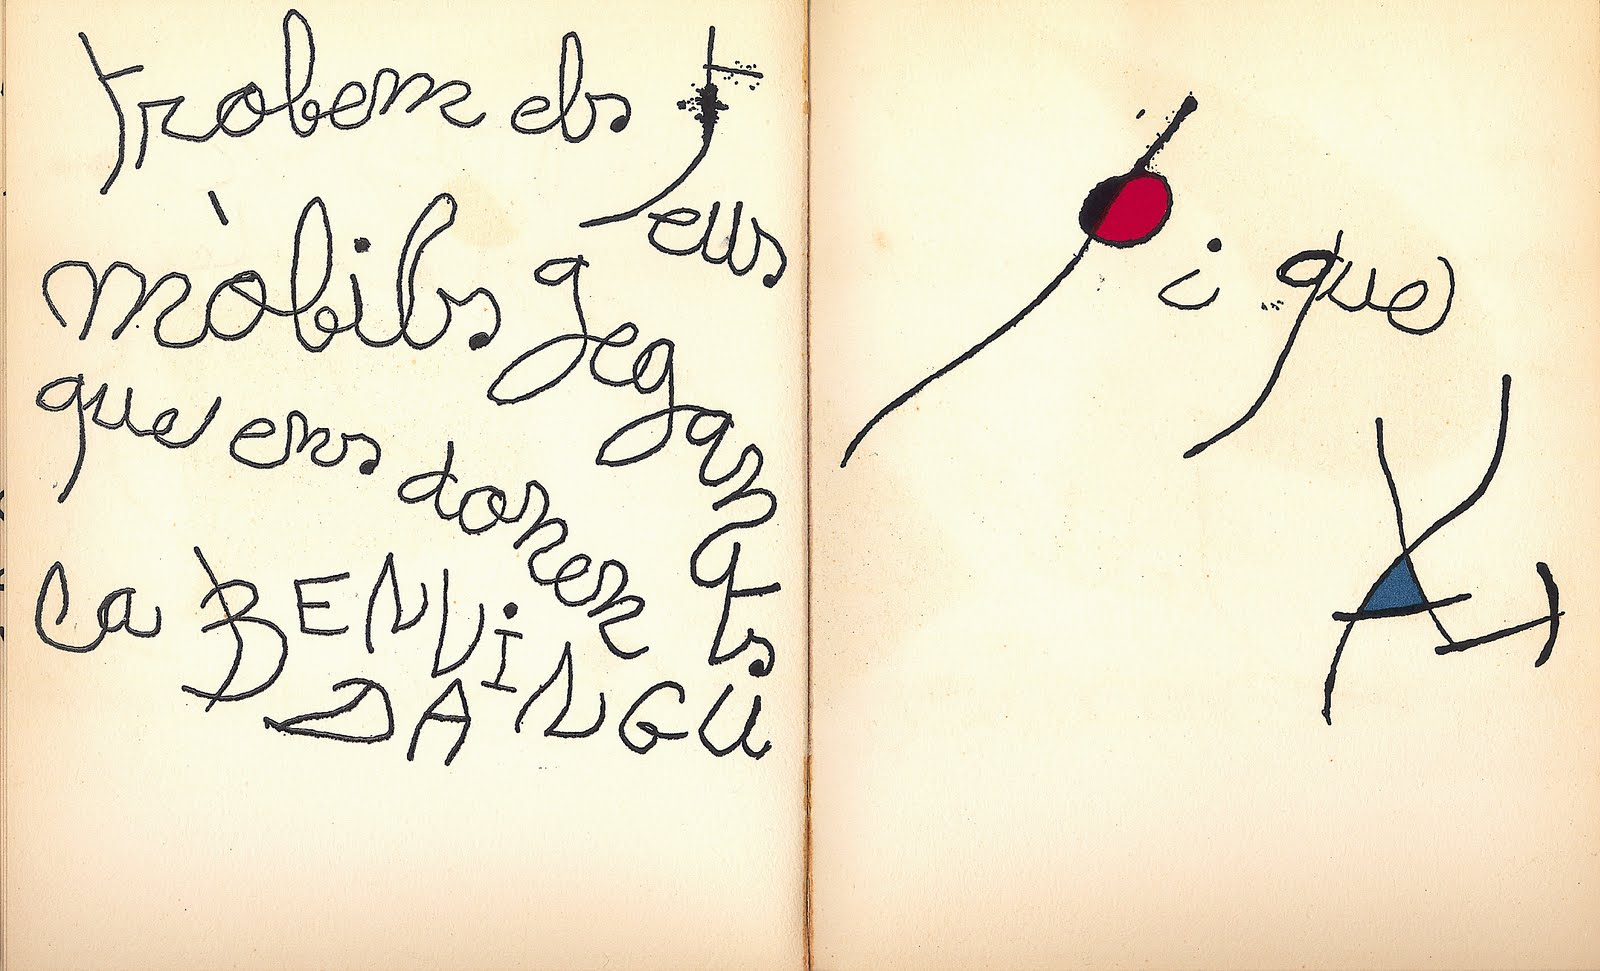 trobem els
teus
mòbils gegants
que ens donen
la BENViNGU
DA
i que